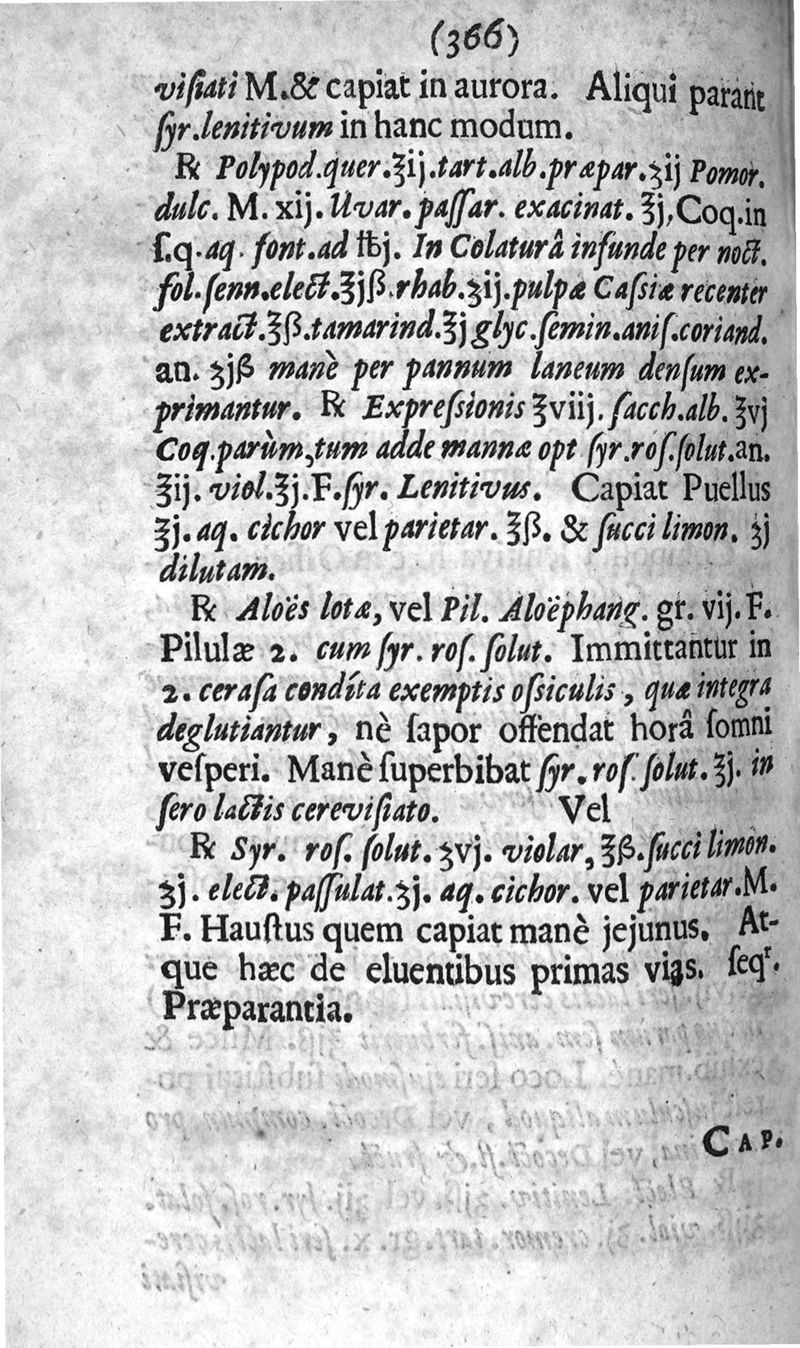 (366)
viſiati M.& capiat in aurora. Aliqui parant
ſyr.lenitivum in hanc modum.
℞ Polypod.quer.℥ij.tart.alb.præpar.ʒij Pomor.
dulc. M. xij. Uvar.paſſar. exacinat. ℥j,Coq.in
ſ.q.aq. font.ad ℔j. In Colaturâ infunde per noct.
fol.ſenn.elect.℥jß.rhab.ʒij.pulpæ Caſsiæ recenter
extract.℥ß.tamarind.℥j glyc.ſemin.aniſ.coriand.
an. ʒjß manè per pannum laneum denſum ex-
primantur. ℞ Expreſsionis ℥viij. ſacch.alb. ℥vj
Coq.parùm,tum adde mannæ opt ſyr.roſ.ſolut.an.
℥ij. viol.℥j.F.ſyr. Lenitivus. Capiat Puellus
℥j.aq. cichor vel parietar. ℥ß. & ſucci limon. ʒj
dilutam.
℞ Aloës lotæ, vel Pil. Aloëphang. gr. vij. F.
Pilulæ 2. cum ſyr. roſ. ſolut. Immittantur in
2. ceraſa condíta exemptis oſsiculis, quæ integra
deglutiantur, nè ſapor offendat horâ ſomni
veſperi. Manè ſuperbibat ſyr. roſ. ſolut. ℥j. in
ſero lactis cereviſiato. Vel
℞ Syr. roſ. ſolut. ʒvj. violar, ℥ß.ſucci limon.
ʒj. elect. paſſulat.ʒj. aq. cichor. vel parietar.M.
F. Hauſtus quem capiat manè jejunus. At-
que hæc de eluentibus primas vias. ſeqr.
Præparantia.
CAP.